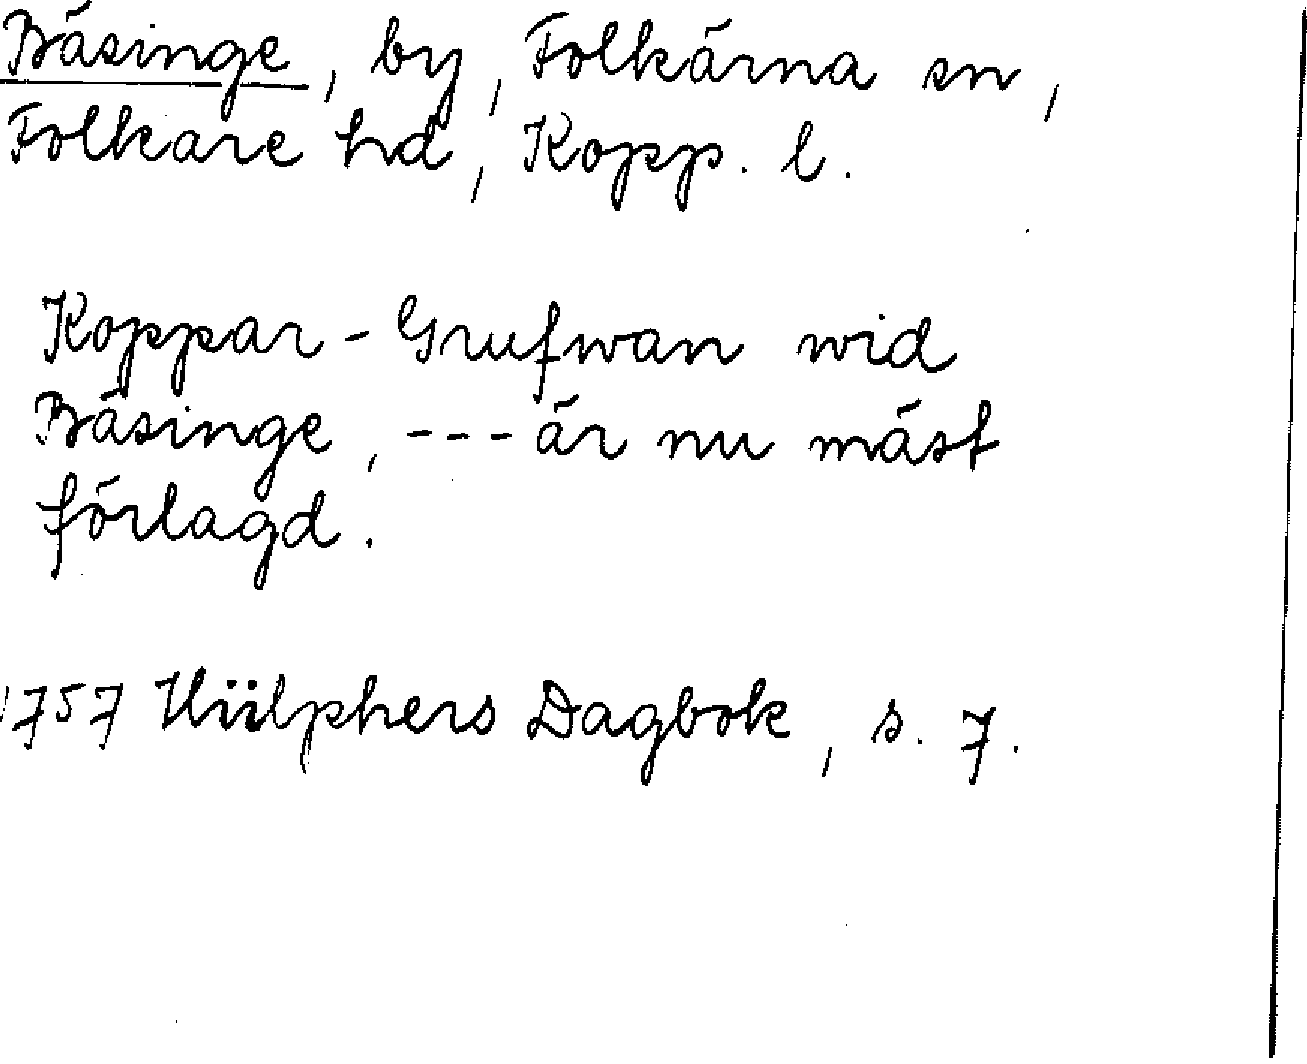 Bäsinge, by, Folkärna sn,
Folkare hd, Kopp. l.
Koppar-Grufwan wid
Bäsinge, --- är nu mäst
förlagd.
1757 Hülphers Dagbok, s. 7.